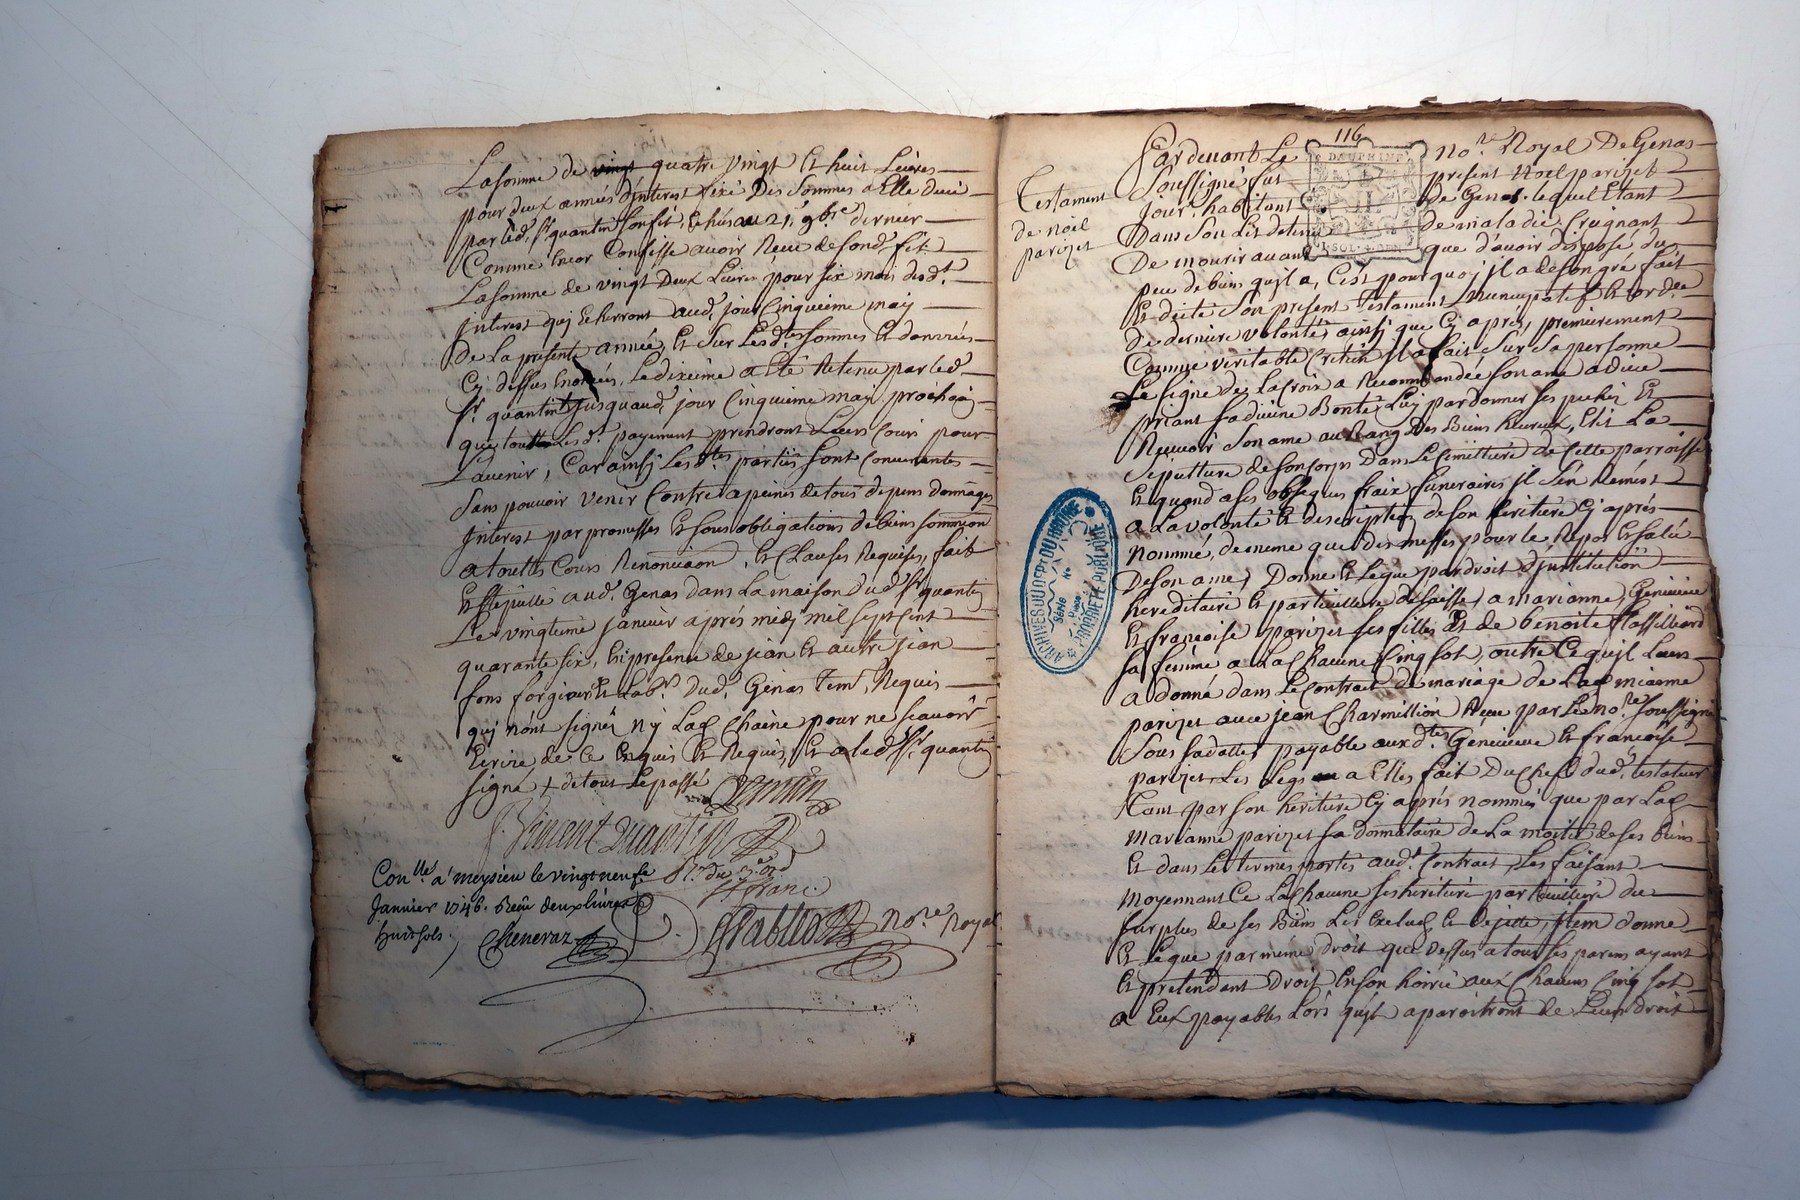 La somme de vingt quatre vingt et huit Livres
pour deux années d'interest fixé des sommes a Elle duës
par led. Sr quantin Son fils, Echüs au 21e 9bre dernier
Comme Encor Confesse avoir Reçu de sond. fils
La somme de vingt Deux Livres pour six mois desd.t
Interest qui Echerront aud. jour Cinquieme may
De La presente année, et Sur Lesd.tes sommes et denrées
Cy dessus Enoncées, Le dixieme a Eté Retenu par led.
Sr quantin jusquaud. jour Cinquieme may prochain
que Lesd.t payement prendront Leurs Cours pour
L'avenir, Car ainsy Lesd.tes parties sont Convenantes
Sans pouvoir venir Contre a peines de tous depens dommages
Interest par promesses et sous obligations de biens soumission
a toutes Cours Renonciaon, et Clauses Requises, fait
et stipullé aud. Genas dans La maison dud. Sr quantin
Le vingtieme janvier après midy mil sept cent
quarante six, En presence de jean et autre jean
fons forgeur et Lab.rs dud. Genas Tem.s Requis
qui nônt signés ny Lad. Chaine pour ne scavoir
Ecrire de ce Enquis et Requis, Et a led. Sr quantin
signé + de tous Le passé
Vincent Quantin
Con.llé a meysieu le vingt neufe
Janvier 1746. Reçu deux livres
huit sols.
Cheneraz
Pabllo no.re Royal
116
DAUPHINE
Testament
de noël
parizet
Pardevant Le no.re Royal De Genas
Soussigné fut present Noel parizet
jour.r habitant de Genas. lequel Etant
Dans Son Lit detenu de maladie Craignant
De mourir avant que d'avoir disposé du
peu de biens qu'il a, C'est pourquoy il a de son gré fait
et dicté Son present Testament Nuncupatif et ord.ce
de derniere volonté ainsy que Cy apres, premierement
Comme veritable Cretien il a fait Sur Sa personne
Le signe de La Croix a Recommandée son ame a dieu
priant sa divine Bonté Luy pardonner ses pechés et
Recevoir Son ame au Rang des Biens heureux, Elit La
sepulture de son Corps Dans Le Cimettiere de Cette parroisse
Et quand a ses obseques fraix funeraires il s'en Remest
a La volonté et description de son heritiere Cy après
nommée, de meme que des messes pour le Repos et salu
De son ame, Donne et Legue par droit d'institution
hereditaire et particulliere delaisse, a marianne, Genevieve
et françoise parizet ses filles et de benoite
sa femme a Lachacune Cinq sols, outre Ce qu'il Leurs
a donné dans Le Contrat de mariage de Lad. marianne
parizet avec jean Charmillion Recu par Le no.re soussigné
Sous sa datte, payable auxd.tes Genevieve et francoise
parizet Les Legs a Elles fait Du Chef dud. testateur
tant par son heritiere Cy aprés nommée que par Lad.
marianne parizet sa donnataire de La moitié de ses biens
Et dans Les termes portés aud.t Contrat, Les faisant
moyennant Ce Lachacune ses heritiere particulliere du
surplus de ses Biens Les Exclud et dejette, Item donne
et Legue par meme droit que Dessus a tous ses parens ayant
et pretendant Droit En son hoirie aux Chacuns Cinq sols
a Eux payables Lors qu'ils aparoitront de Leurs droit
ARCHIVES DU DEPt DU RHÔNE
Série
No
PROPRIÉTÉ PUBLIQUE